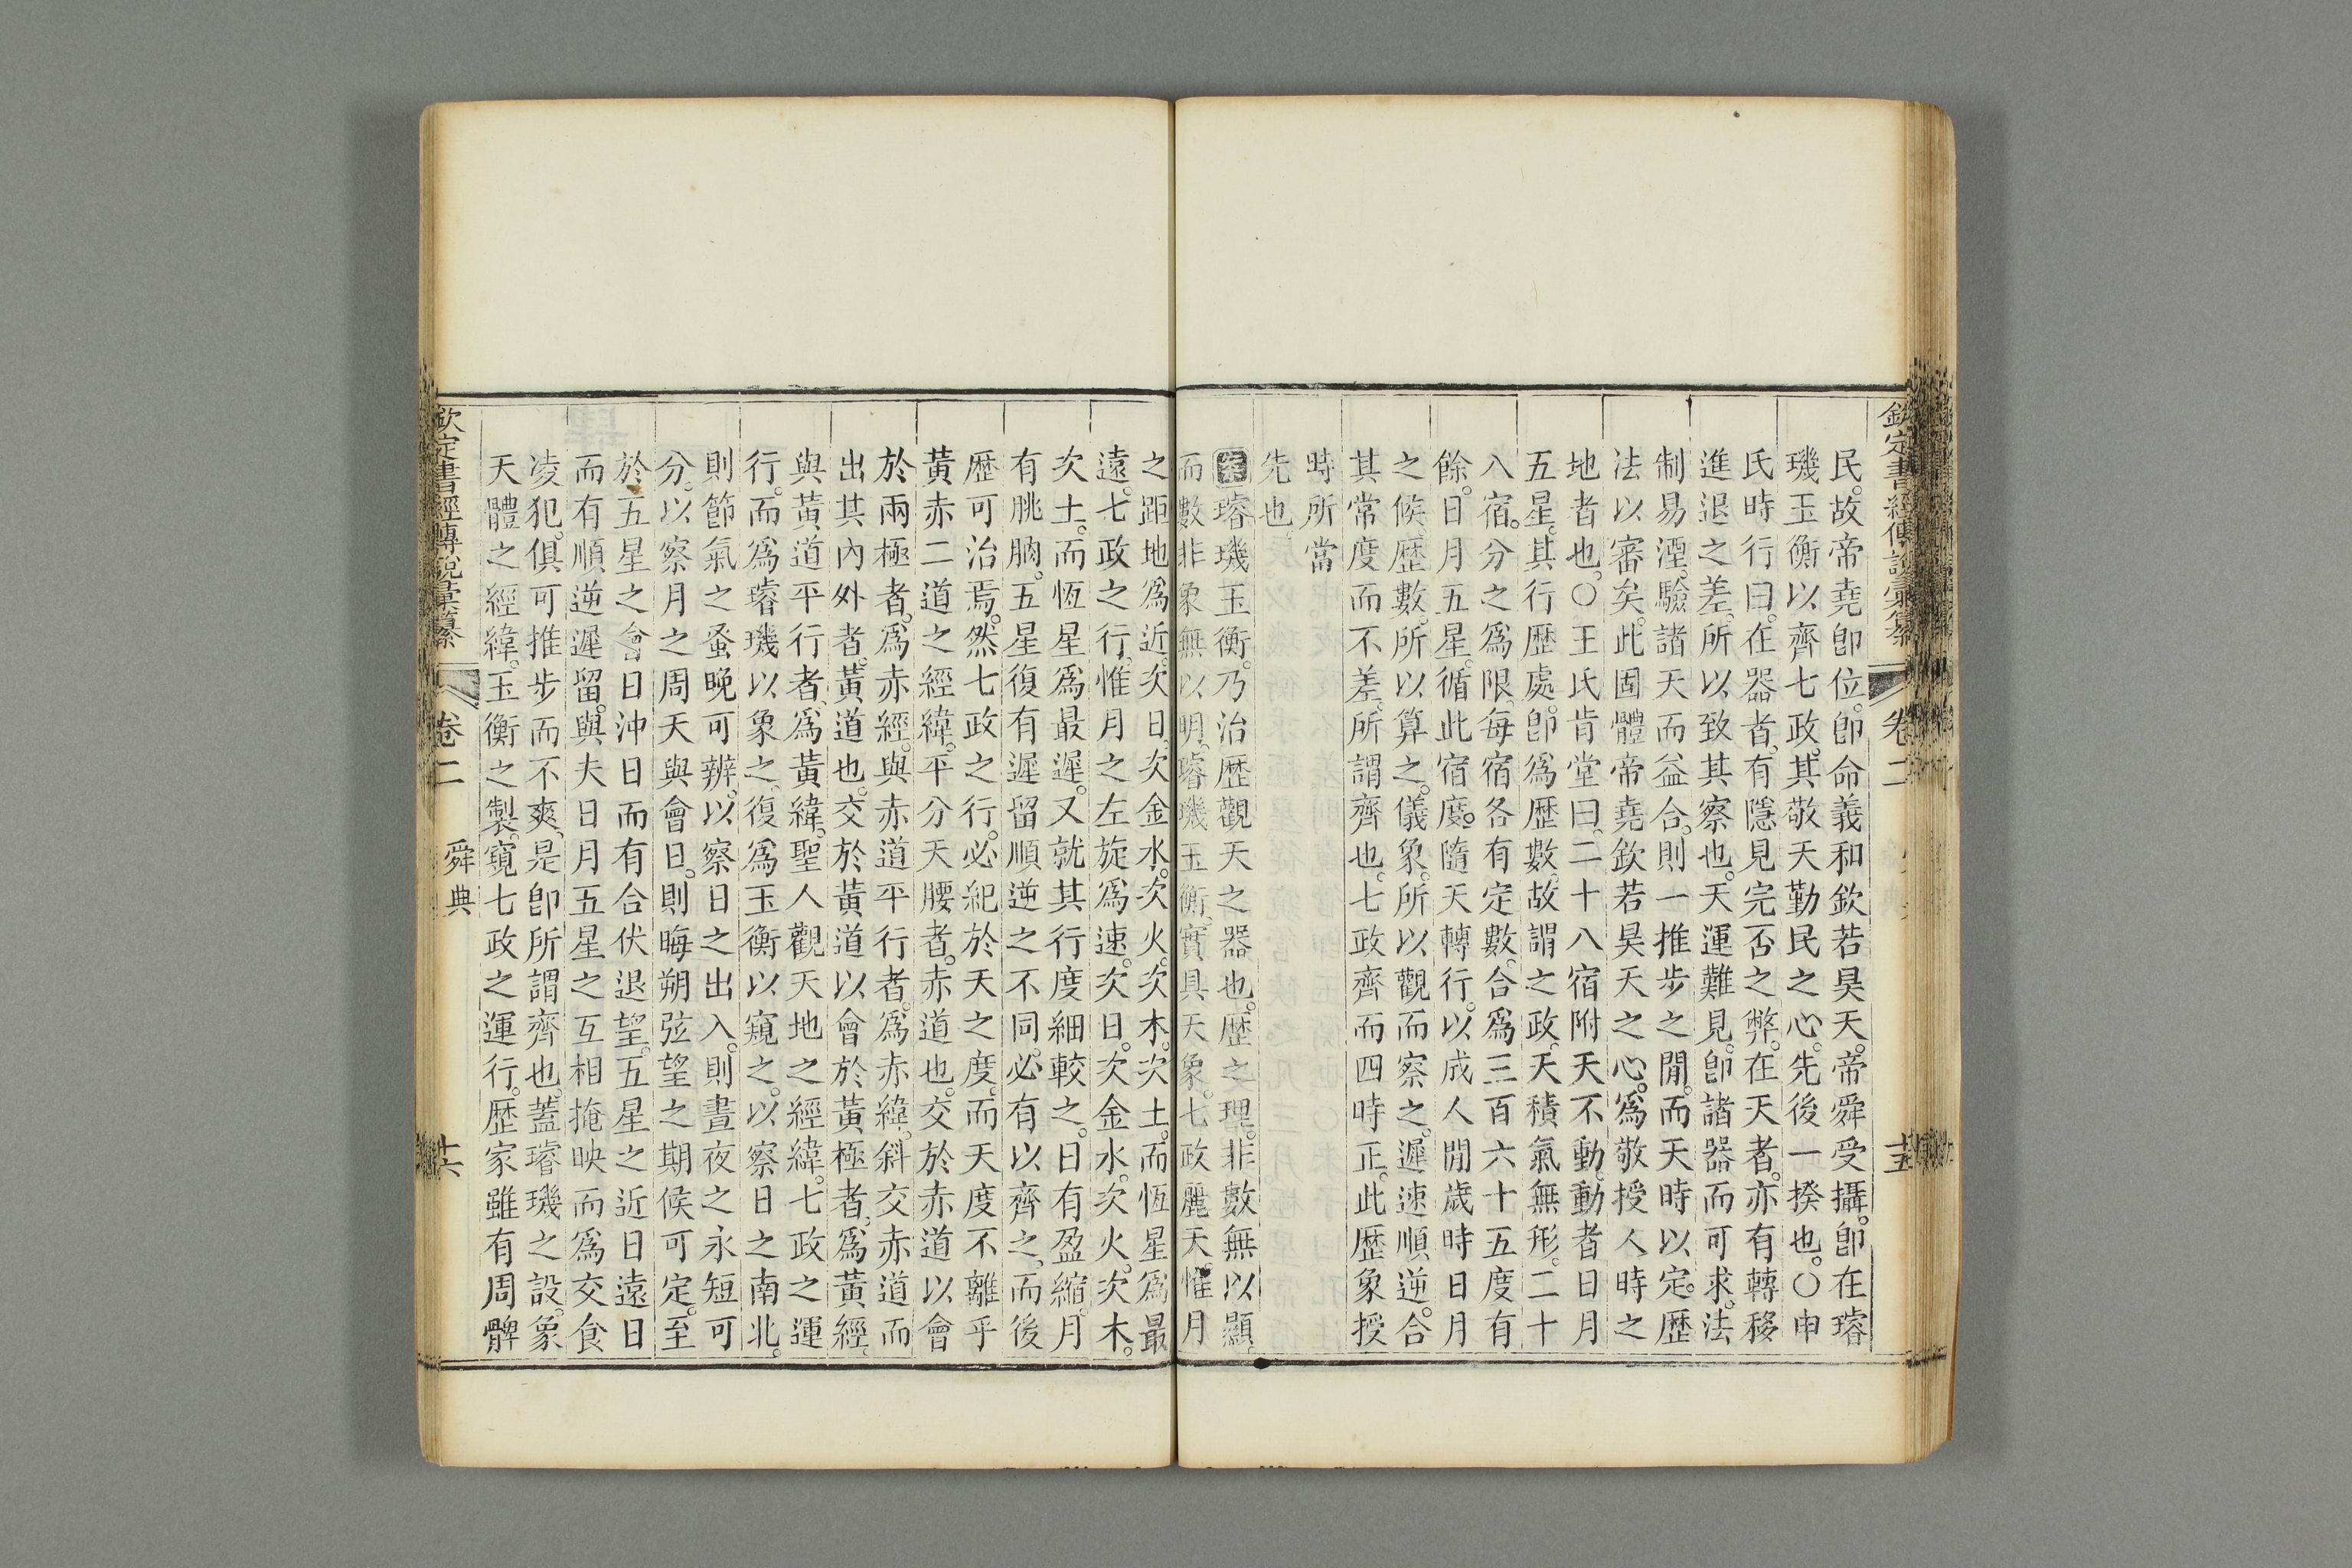 欽定書經傳說彙纂 卷二 十五
民。故帝堯卽位。卽命義和欽若昊天。帝舜受攝。卽在璿
璣玉衡以齊七政。其敬天勤民之心。先後一揆也。〇申
氏時行曰。在器者。有隱見完否之弊。在天者。亦有轉移
進退之差。所以致其察也。天運難見。卽諸器而可求。法
制易湮。驗諸天而益合。則一推步之閒。而天時以定。歷
法以審矣。此固體帝堯欽若昊天之心。爲敬授人時之
地者也。〇王氏肯堂曰。二十八宿附天不動。動者日月
五星。其行歷處。卽爲歷數。故謂之政。天積氣無形。二十
八宿。分之爲限。每宿各有定數。合爲三百六十五度有
餘。日月五星。循此宿度。隨天轉行。以成人閒歲時日月
之候。歷數。所以算之。儀象。所以觀而察之。遲速順逆。合
其常度而不差。所謂齊也。七政齊而四時正。此歷象授
時所當
先也。
案璿璣玉衡。乃治歷觀天之器也。歷之理。非數無以顯。
而數非象無以明。璿璣玉衡。實具天象。七政麗天。惟月
之距地爲近。次日。次金水。次火。次木。次土。而恆星爲最
遠。七政之行。惟月之左旋爲速。次日。次金水。次火。次木。
次土。而恆星爲最遲。又就其行度細較之。日有盈縮。月
有脁朒。五星復有遲留順逆之不同。必有以齊之。而後
歷可治焉。然七政之行。必紀於天之度。而天度不離乎
黃赤二道之經緯。平分天腰者。赤道也。交於赤道以會
於兩極者。爲赤經。與赤道平行者。爲赤緯。斜交赤道而
出其內外者。黃道也。交於黃道以會於黃極者。爲黃經。
與黃道平行者。爲黃緯。聖人觀天地之經緯。七政之運
行。而爲璿璣以象之。復爲玉衡以窺之。以察日之南北。
則節氣之蚤晚可辨。以察日之出入。則晝夜之永短可
分。以察月之周天與會日。則晦朔弦望之期候可定。至
於五星之會日沖日而有合伏退望。五星之近日遠日
而有順逆遲留。與夫日月五星之互相掩映而爲交食
凌犯。俱可推步而不爽。是卽所謂齊也。蓋璿璣之設。象
天體之經緯。玉衡之製。窺七政之運行。歷家雖有周髀
欽定書經傳說彙纂 卷二 舜典 十六